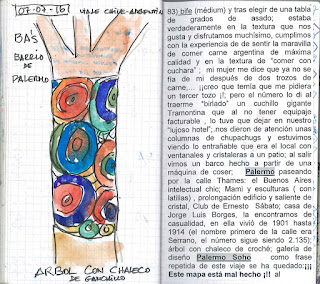 07-07-16
VIAJE CHILE-ARGENTINA
BAS
BARRIO
DE
PALERMO
ARBOL CON CHALECO
DE GANCHILLO
83) bife (médium) y tras elegir de una tabla
de grados de asado; estaba
verdaderamente en la textura que nos
gusta y disfrutamos muchísimo, cumplimos
con la experiencia de de sentir la maravilla
de comer carne argentina de máxima
calidad y en la textura de "comer con
cuchara" ; mi mujer dice que ya no se
fía de mi después de dos trozos de
carne,... ¡creo que temía que me pidiera
un tercer tozo ¡!; pero el número lo di al
traerme "birlado" un cuchillo gigante
Tramontina que al no tener equipaje
facturable , lo tuve que dejar en nuestro
"lujoso hotel"; nos dieron de atención unas
columnas de chupachugs y estuvimos
viendo lo entrañable que era el local con
ventanales y cristaleras a un patio; al salir
vimos un barco hecho a partir de una
máquina de coser; Palermo paseando
por la calle Thames: el Buenos Aires
intelectual chic; Mami y esculturas ( con
latillas) , prolongación edificio y saliente de
cristal, Club de Ernesto Sábato; casa de
Jorge Luis Borges, la encontramos de
casualidad, en ella vivió de 1901 hasta
1914 (el nombre primero de la calle era
Serrano, el número sigue siendo 2.135);
árbol con chaleco de croché; galería de
diseño Palermo Soho como frase
repetida de este viaje se ha quedado:¡¡¡
Este mapa está mal hecho ¡!! al